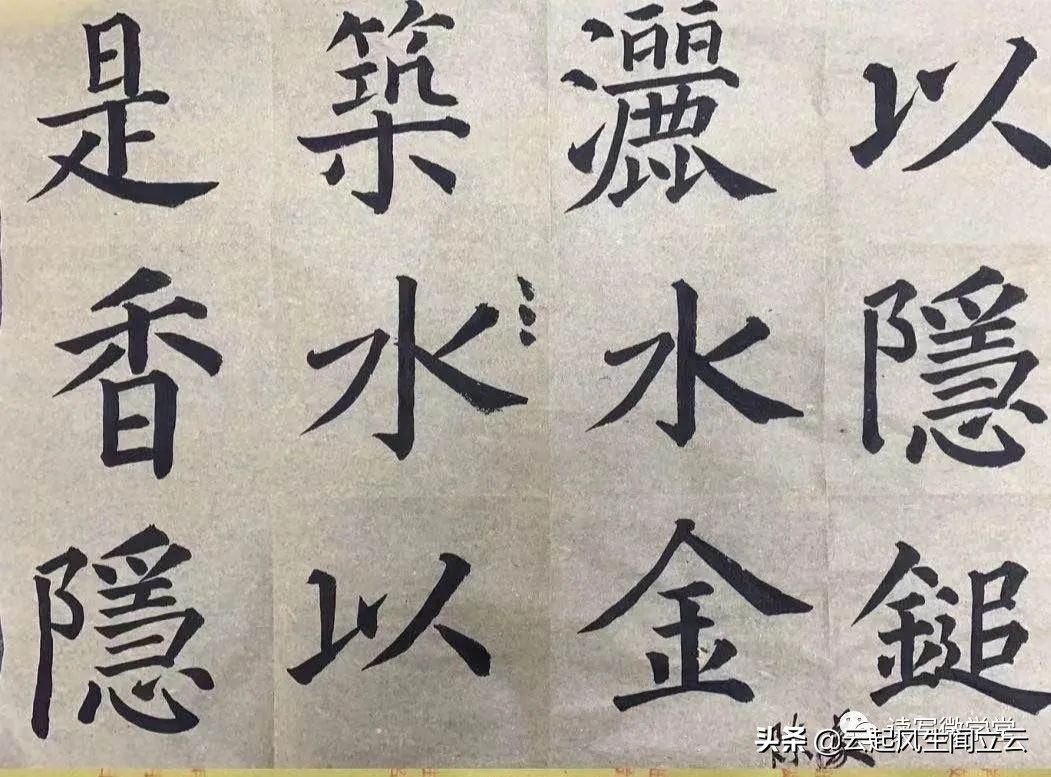 以隱鎚
灑水金
築水以
是香隱
读写微学堂
头条 @云起风生闻立云